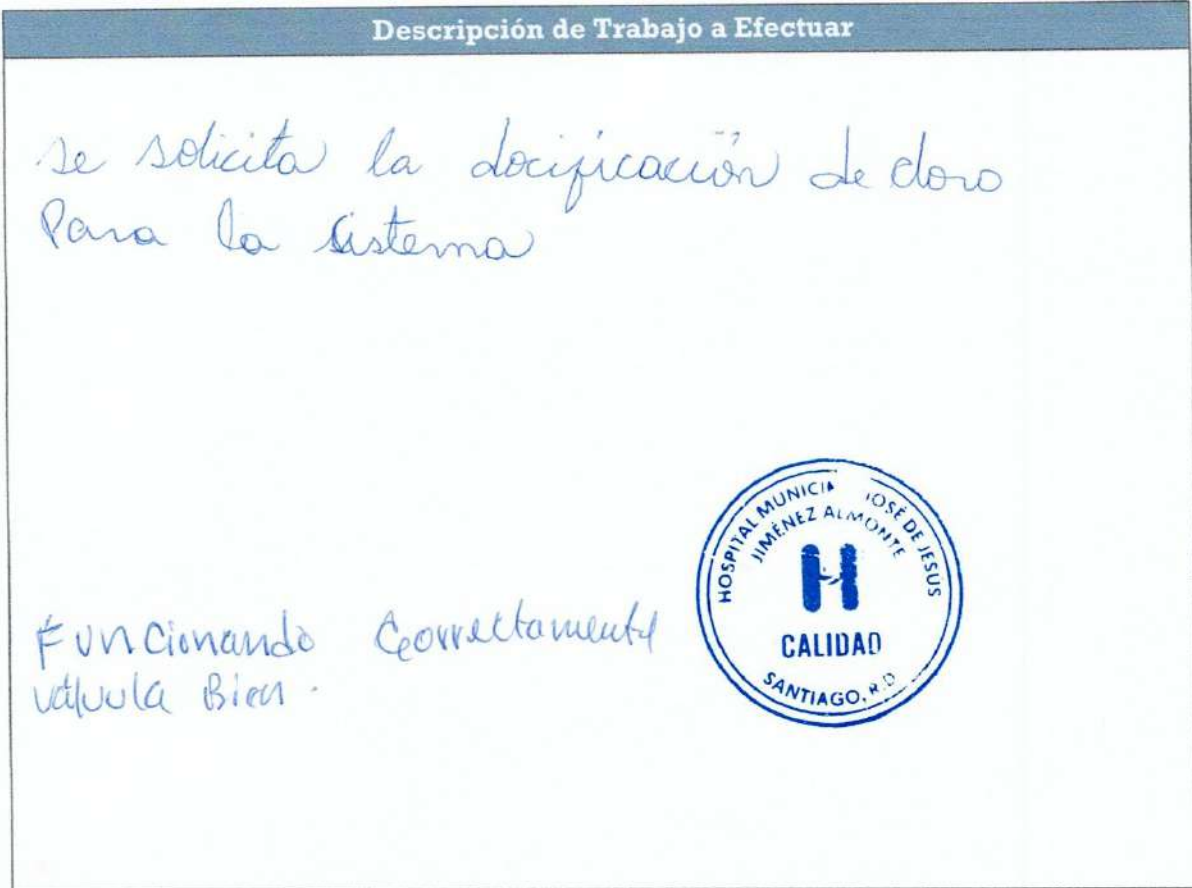 Descripción de Trabajo a Efectuar
se solicita la docificación de cloro
Para la sisterna
Funcionando Correctamente
válvula Bien.
HOSPITAL MUNICIPAL JOSÉ DE JESUS
JIMÉNEZ ALMONTE
H
CALIDAD
SANTIAGO, R.D.